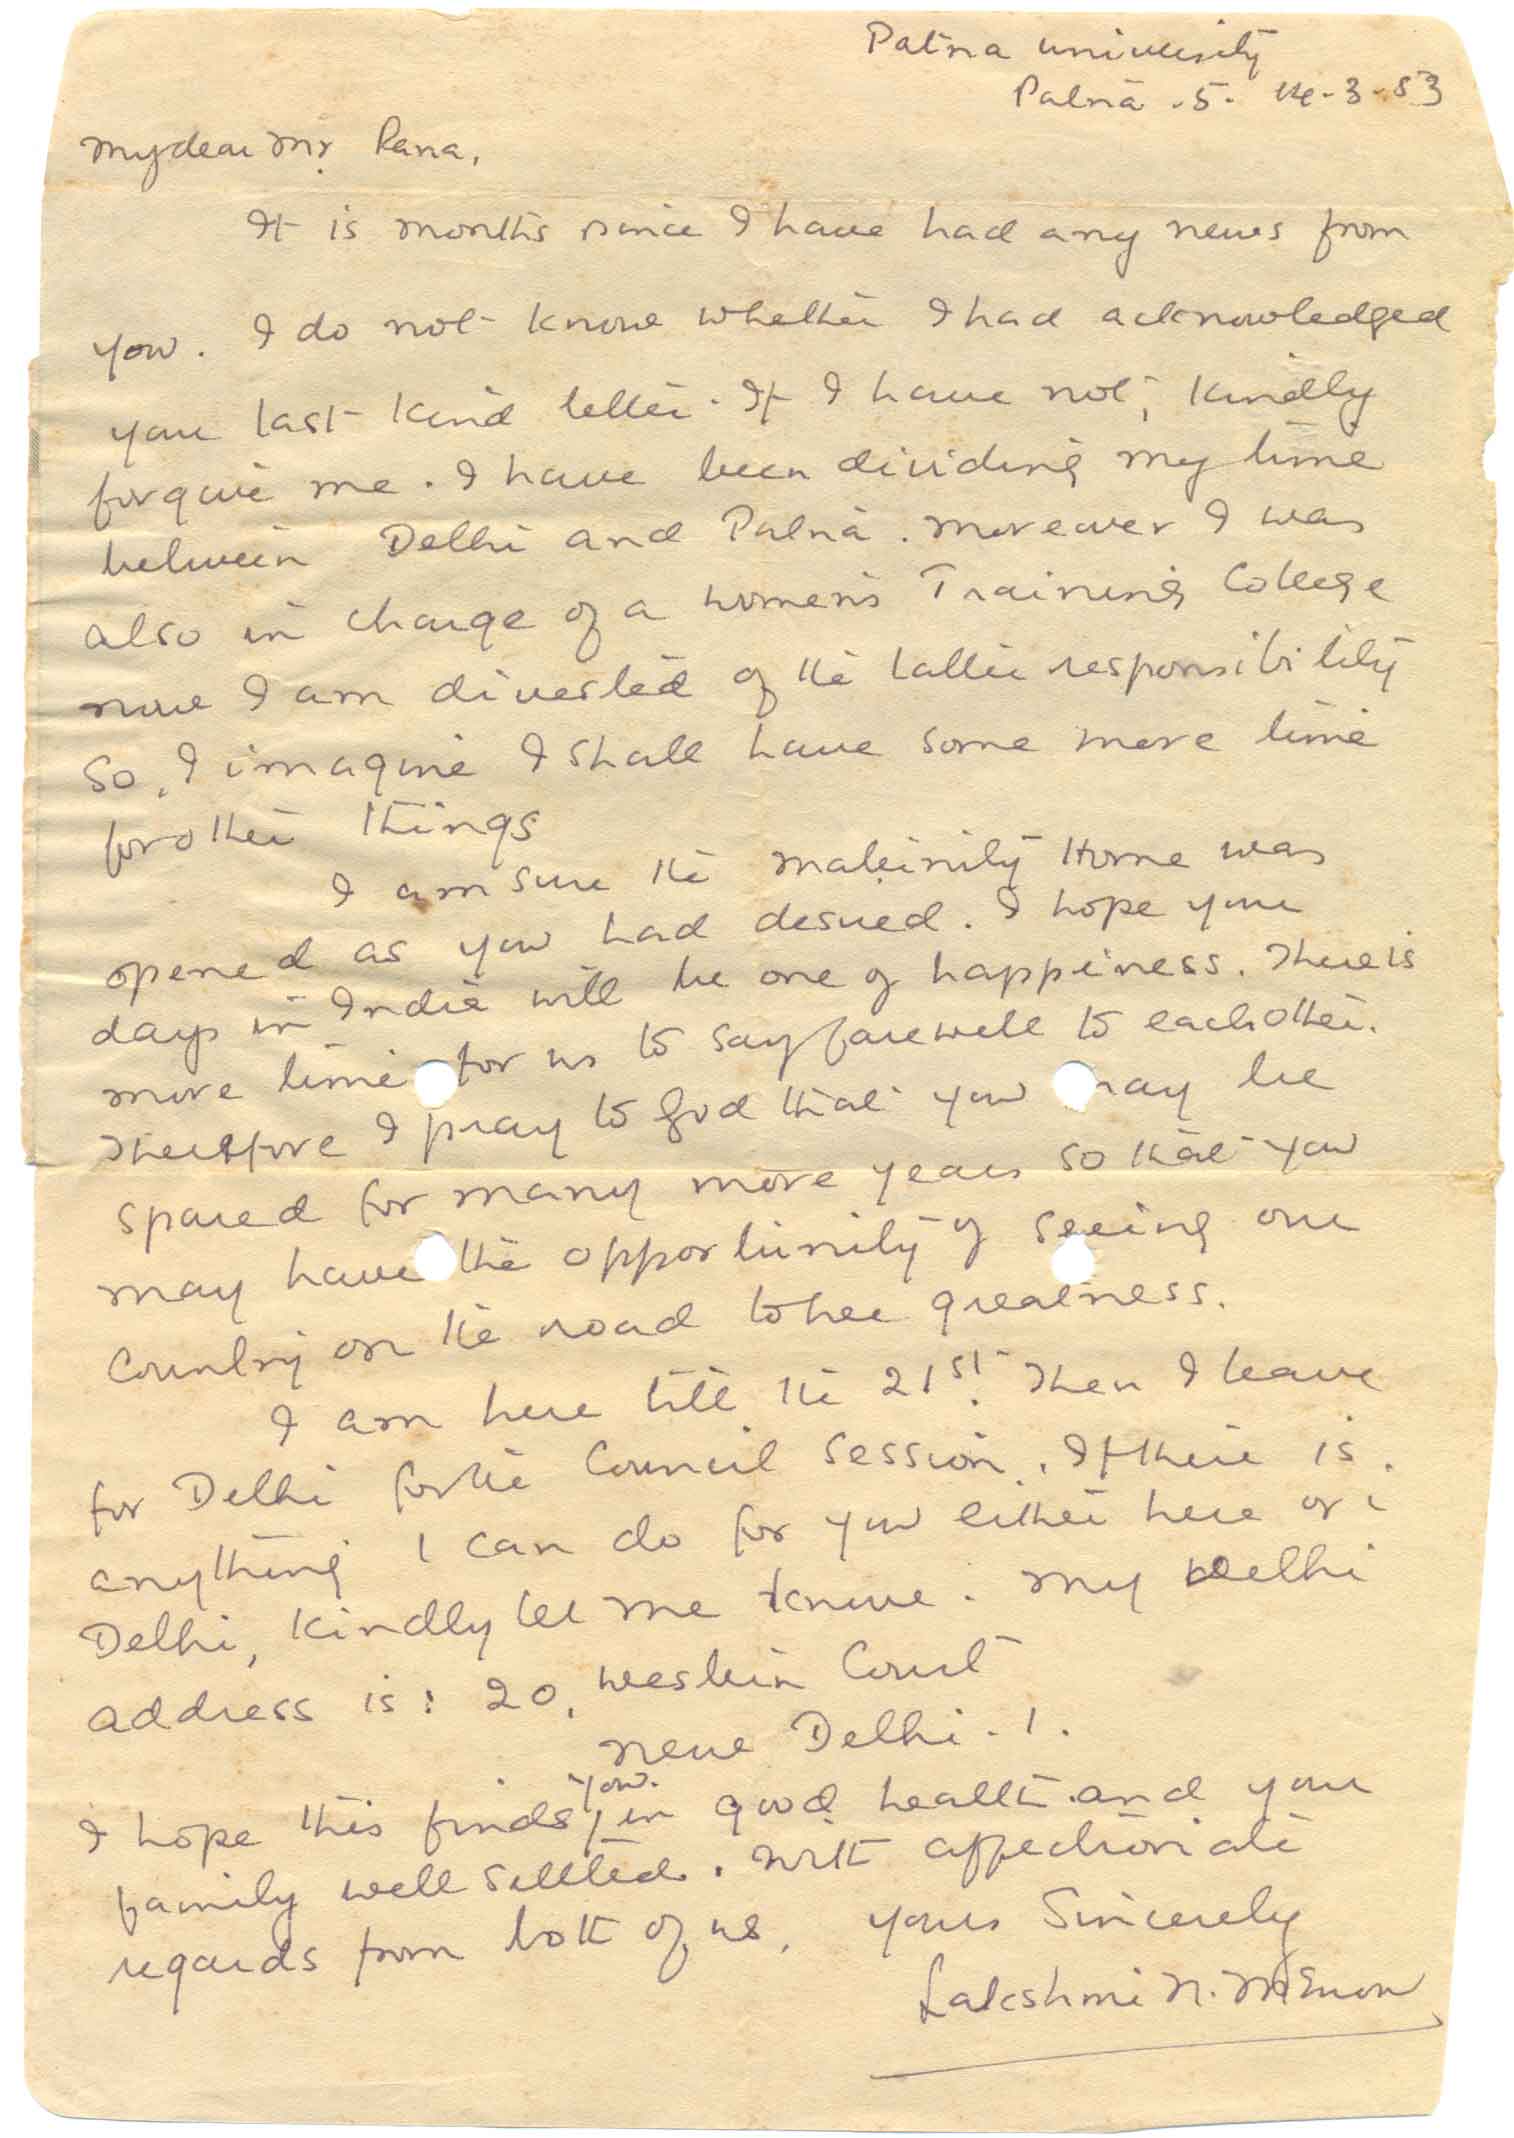 Patna University
Patna.5. 14-3-53
My dear Mr Rana,
It is months since I have had any news from
you. I do not know whether I had acknowledged
your last kind letter. If I have not, kindly
forgive me. I have been dividing my time
between Delhi and Patna. Moreover I was
also in charge of a women's Training College
now I am divested of the latter responsibility
So, I imagine I shall have some more time
for other things
I am sure the maternity Home was
opened as you had desired. I hope your
days in India will be one of happiness. There is
more time for us to say farewell to each other.
Therefore I pray to God that you may be
spared for many more years so that you
may have the opportunity of seeing our
Country on the road to her greatness.
I am here till the 21st. Then I leave
for Delhi for the Council Session. If there is
anything I can do for you either here or
Delhi, kindly let me know. My Delhi
address is: 20, Western Court
New Delhi.1.
I hope this finds you in good health and your
family well settled. With affectionate
regards from both of us, yours Sincerely
Lakshmi N. Menon